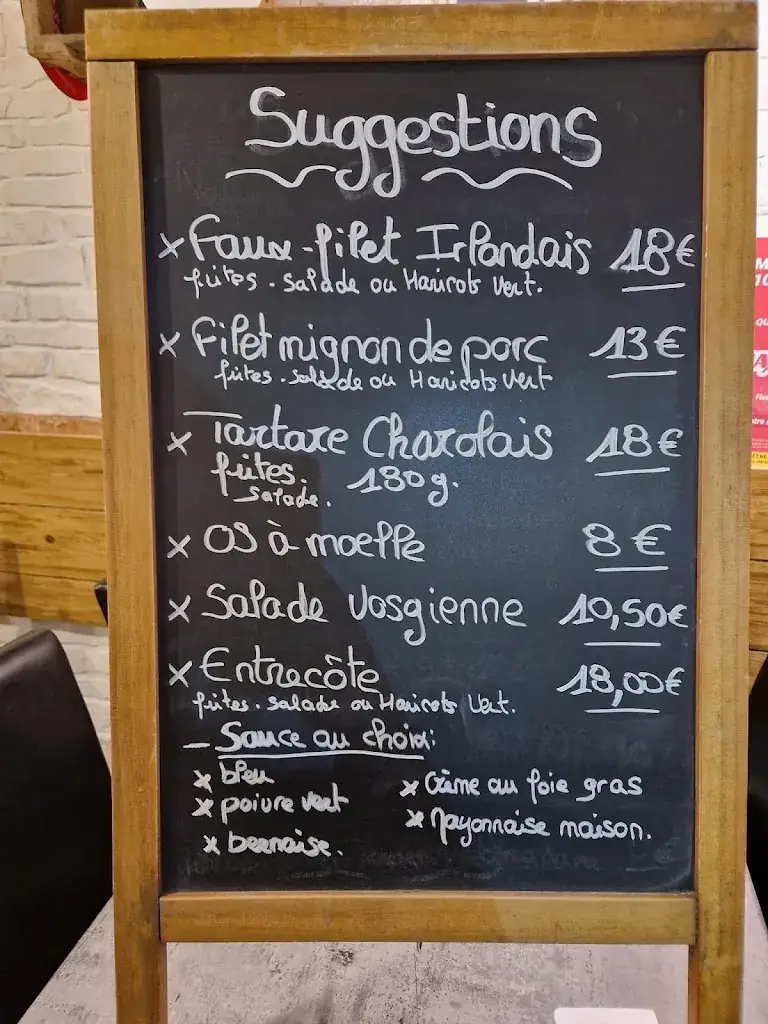 Suggestions
x Faux-filet Irlandais 18€
frites. salade ou Haricots Vert.
x Filet mignon de porc 13€
frites. salade ou Haricots Vert
x Tartare Charolais 18€
frites. 180g.
salade.
x OS à moelle 8€
x Salade Vosgienne 10,50€
x Entrecôte 18,00€
frites. salade ou Haricots Vert.
- Sauce au choix:
x bleu
x poivre vert
x bearnaise.
x Crème au foie gras
x Mayonnaise maison.